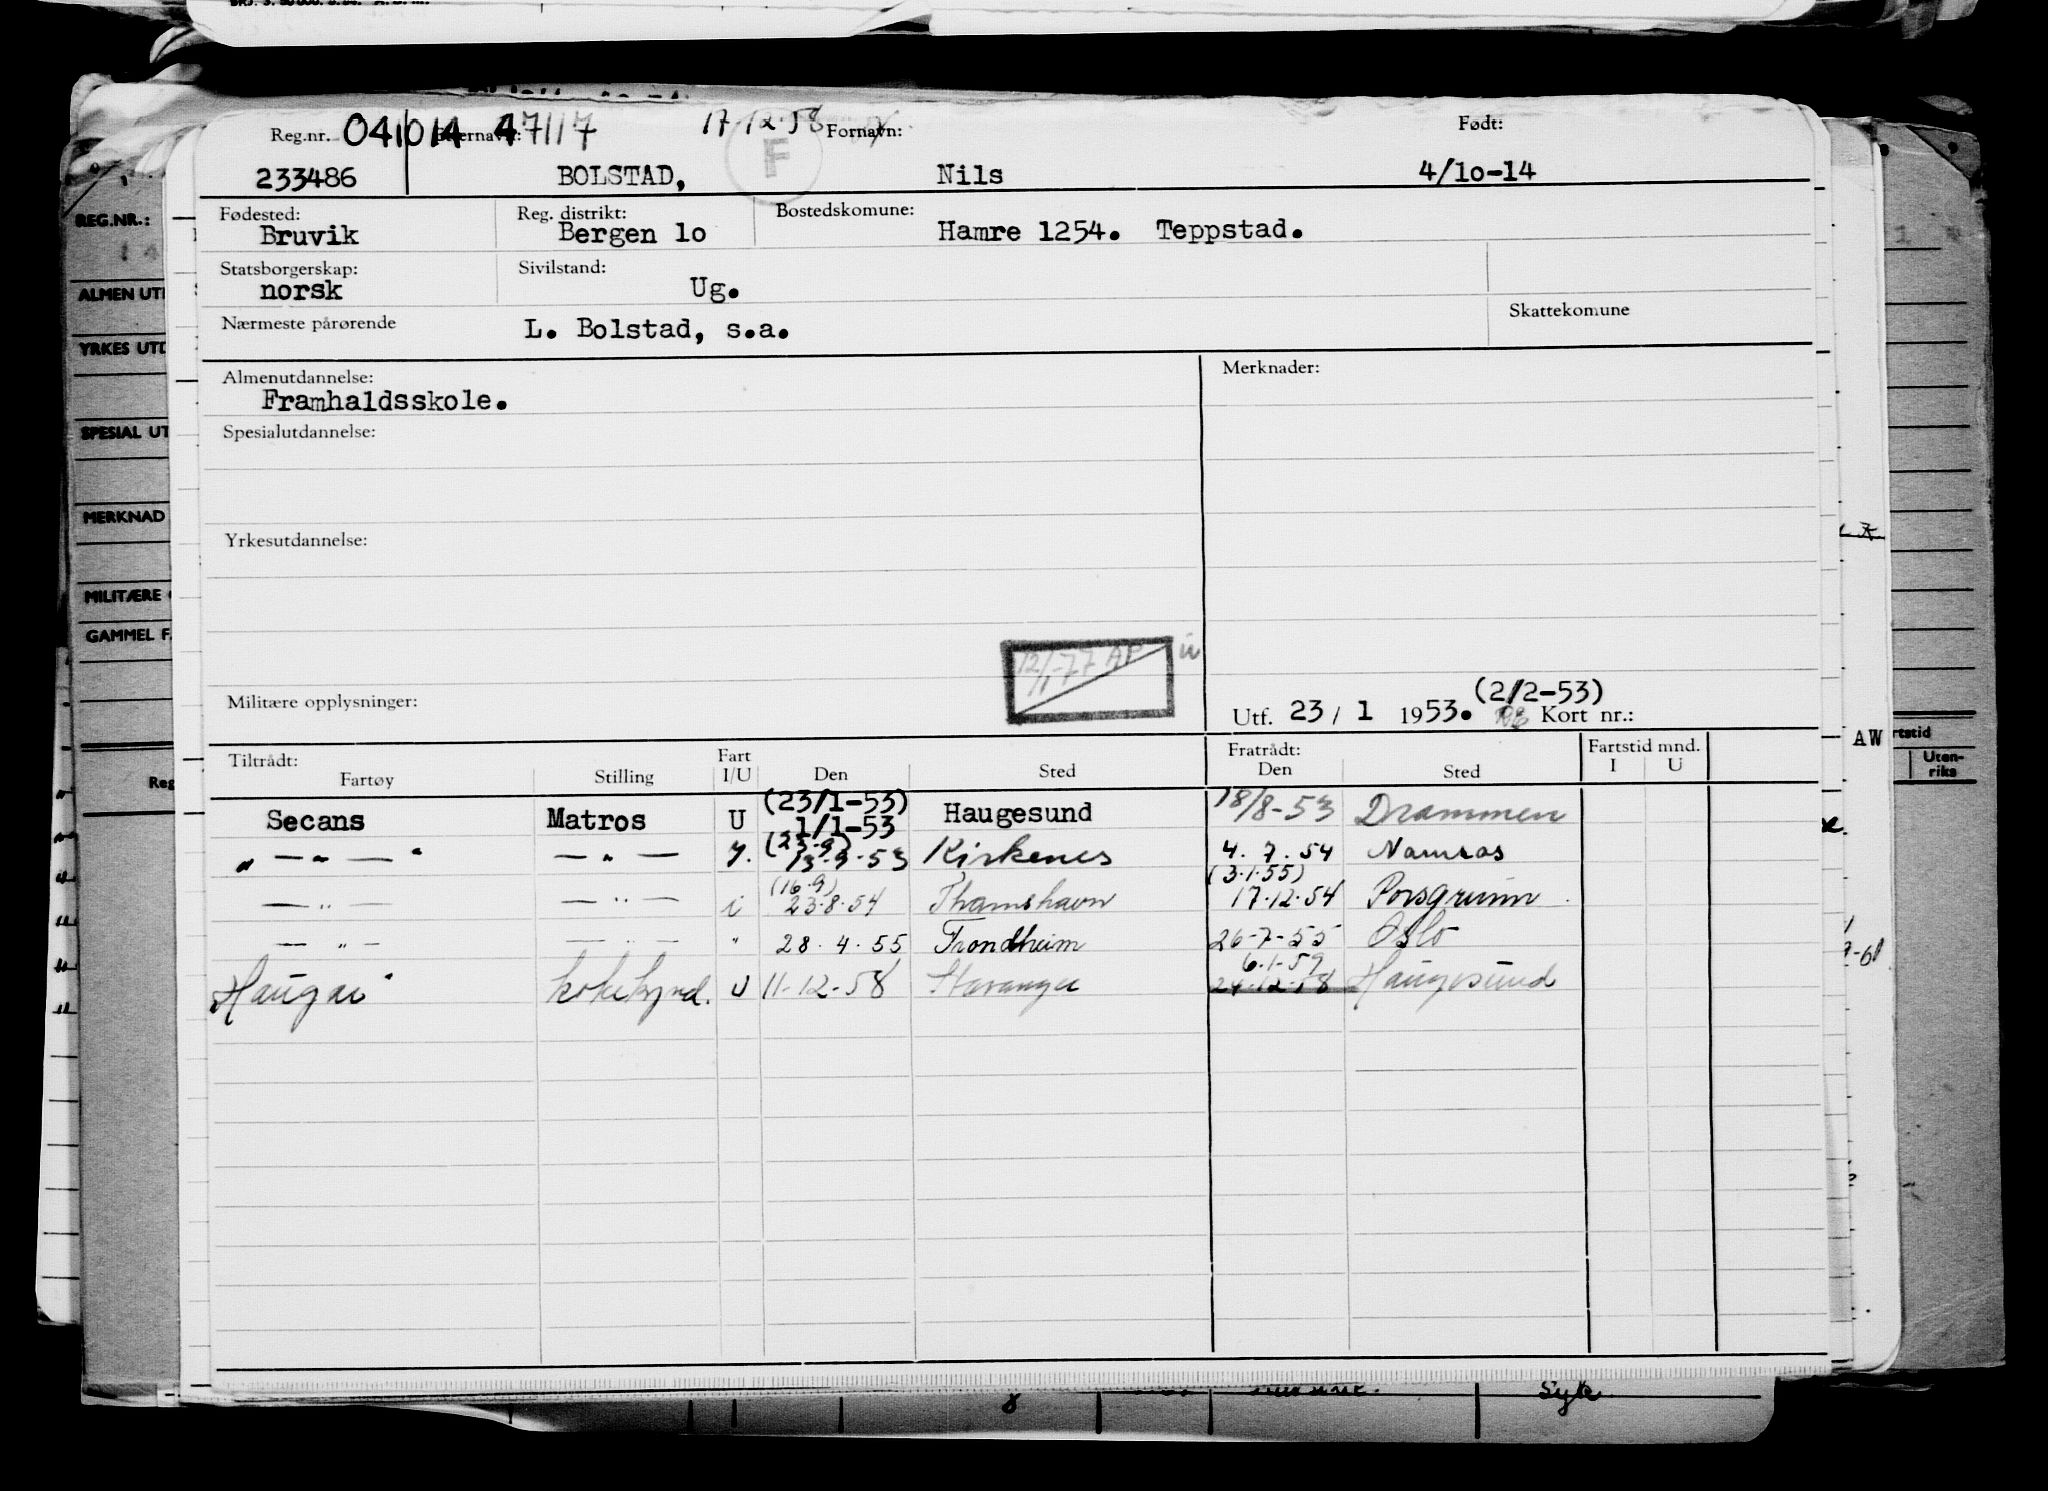 Reg.nr. 041014 Etternavn: 47117 17.12.58 Fornavn: Født:
233486 BOLSTAD, F Nils 4/1o-14
Fødested: Reg. distrikt: Bostedskomune:
Bruvik Bergen 1o Hamre 1254. Teppstad.
Statsborgerskap: Sivilstand:
norsk Ug.
Nærmeste pårørende L. Bolstad, s.a. Skattekomune
Almenutdannelse: Merknader:
Framhaldsskole.
Spesialutdannelse:
Yrkesutdannelse:
12/1-77 AP
Militære opplysninger:
(2/2-53)
Utf. 23 / 1 1953. Kort nr.:
Tiltrådt: Fart Fratrådt: Fartstid mnd.
Fartøy Stilling I/U Den Sted Den Sted I U
Secans Matros U (23/1-53) 1/1-53 Haugesund 18/8-53 Drammen
" — " — " — " — (23-9) 13-9-53 Kirkenes 4.7.54 Namsos
— " — — " — i (16.9) 23.8.54 Thamshavn (3.1.55) 17.12.54 Porsgrunn
— " — — " — " 28.4.55 Trondheim 26-7-55 Oslo
U 11-12-58 Stavanger 6.1-59 24.12.58 Haugesund
REG.NR.:
ALMEN UT
YRKES UTD
SPESIAL UT
MERKNAD
MILITÆRE
GAMMEL F.
Reg
AW
rtstid
Uten-
riks
8